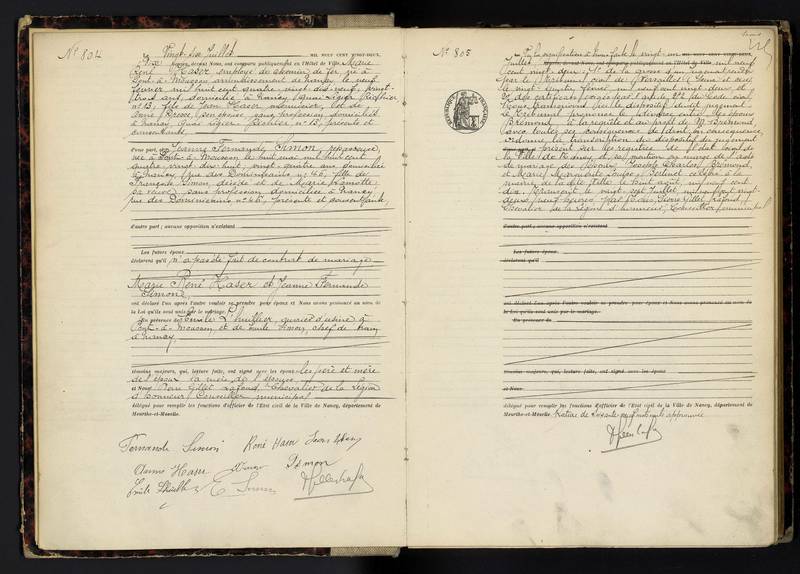 No 804
Vingt-six Juillet MIL NEUF CENT VINGT-DEUX,
heures, devant Nous, ont comparu publiquement en l'Hôtel de Ville Marie
René Haser employé de chemin de fer, né à
Pont-à-Mousson arrondissement de Nancy le neuf
février mil huit cent quatre vingt dix neuf, vingt
trois ans, domicilié à Nancy, quai Ligier Richier
no 13, fils de Jean Haser menuisier, et de
son épouse, sans profession domiciliés
à Nancy quai Ligier Richier no 13, présents et
consentants
D'une part, et Jeanne Fernande Simon repasseuse,
née à Pont-à-Mousson le huit mai mil huit cent
quatre vingt dix huit, vingt quatre ans domiciliée
à Nancy, rue des Dominicains no 46, fille de
François Simon, décédé et de Marie
sa veuve, sans profession domiciliée à Nancy
rue des Dominicains no 46, présente et consentante,
d'autre part ; aucune opposition n'existant
Les futurs époux
déclarent qu'il n'a pas été fait de contrat de mariage
Marie René Haser et Jeanne Fernande
Simon
ont déclaré l'un après l'autre vouloir se prendre pour époux et Nous avons prononcé au nom de
la Loi qu'ils sont unis par le mariage.
En présence de Emile L'huillier ouvrier d'usine à
Pont-à-Mousson, et de Emile Simon, chef de train
à Nancy,
témoins majeurs, qui, lecture faite, ont signé avec les époux les père et mère
de l'époux la mère de l'épouse
et Nous Pierre Gillet Lafond, Chevalier de la Légion
d'Honneur Conseiller municipal
délégué pour remplir les fonctions d'officier de l'Etat civil de la Ville de Nancy, département de
Meurthe-et-Moselle.
Fernande Simon René Haser
Haser Simon
Emile E. Simon
No 805
MIL NEUF CENT VINGT-DEUX,
Juillet heures, devant Nous, ont comparu publiquement en l'Hôtel de Ville mil neuf
cent vingt deux, de la grosse d'un jugement rendu
par le Tribunal civil de Versailles (Seine et Oise)
le vingt quatre février mil neuf cent vingt deux et
des certificats exigés par l'article 252 du Code civil
Nous transcrivons ici le dispositif dudit jugement
Le Tribunal prononce le divorce entre les époux
Brémond, à la requête et au profit de M. Brémond
avec toutes ses conséquences de droit, en conséquence
ordonne la transcription du dispositif du jugement
présent sur les registres de l'état civil de
la Ville de Nancy, et sa mention en marge de l'acte
de mariage des époux Georges Charles Brémond,
et Marie Marguerite Louise célébré à la
mairie de la dite Ville le août, mil neuf cent
dix. Transcrit le vingt sept Juillet mil neuf cent vingt
deux, neuf heures par Nous, Pierre Gillet Lafond,
Chevalier de la Légion d'honneur, Conseiller municipal
d'autre part ; aucune opposition n'existant
Les futurs époux
déclarent qu'il
ont déclaré l'un après l'autre vouloir se prendre pour époux et Nous avons prononcé au nom de
la Loi qu'ils sont unis par le mariage.
En présence de
témoins majeurs, qui, lecture faite, ont signé avec les époux
et Nous
délégué pour remplir les fonctions d'officier de l'Etat civil de la Ville de Nancy, département de
Meurthe-et-Moselle. Rature de soixante mots nuls approuvée